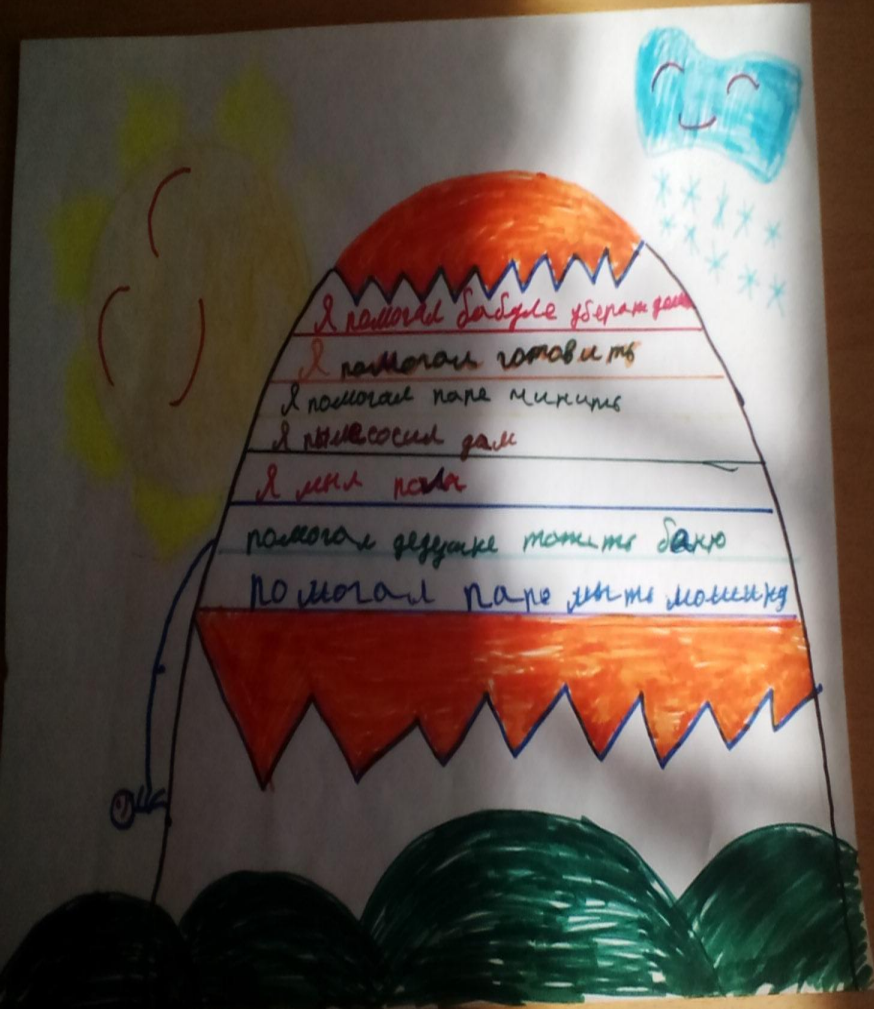 Я помогал бабуле уберать дом
Я помогал готовить
Я помогал папе чинить
Я пылесосил дом
Я мыл полы
помогал дедушке топить баню
помогал папе мыть мошину